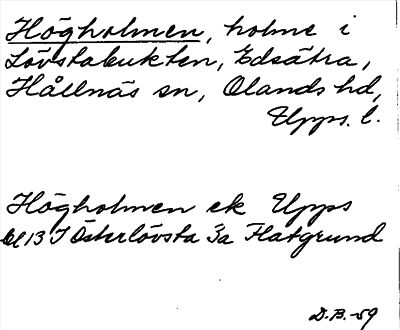 Högholmen, holme i
Lövstabukten, Edsätra,
Hållnäs sn, Olands hd,
Upps. l.
Högholmen ek Upps
bl 13 J Österlövsta 3a Flatgrund
D.B.-59